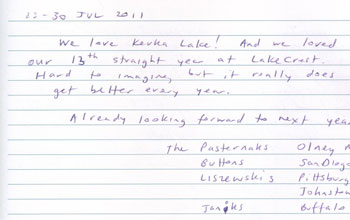 22-30 JUL 2011
We love Keuka Lake! And we loved
our 13th straight year at LakeCrest.
Hard to imagine, but it really does
get better every year.
Already looking forward to next year
The Pasternaks Olney
Buttons San Diego
Liszewski's Pittsburg
Johnstow
Janiks Buffalo